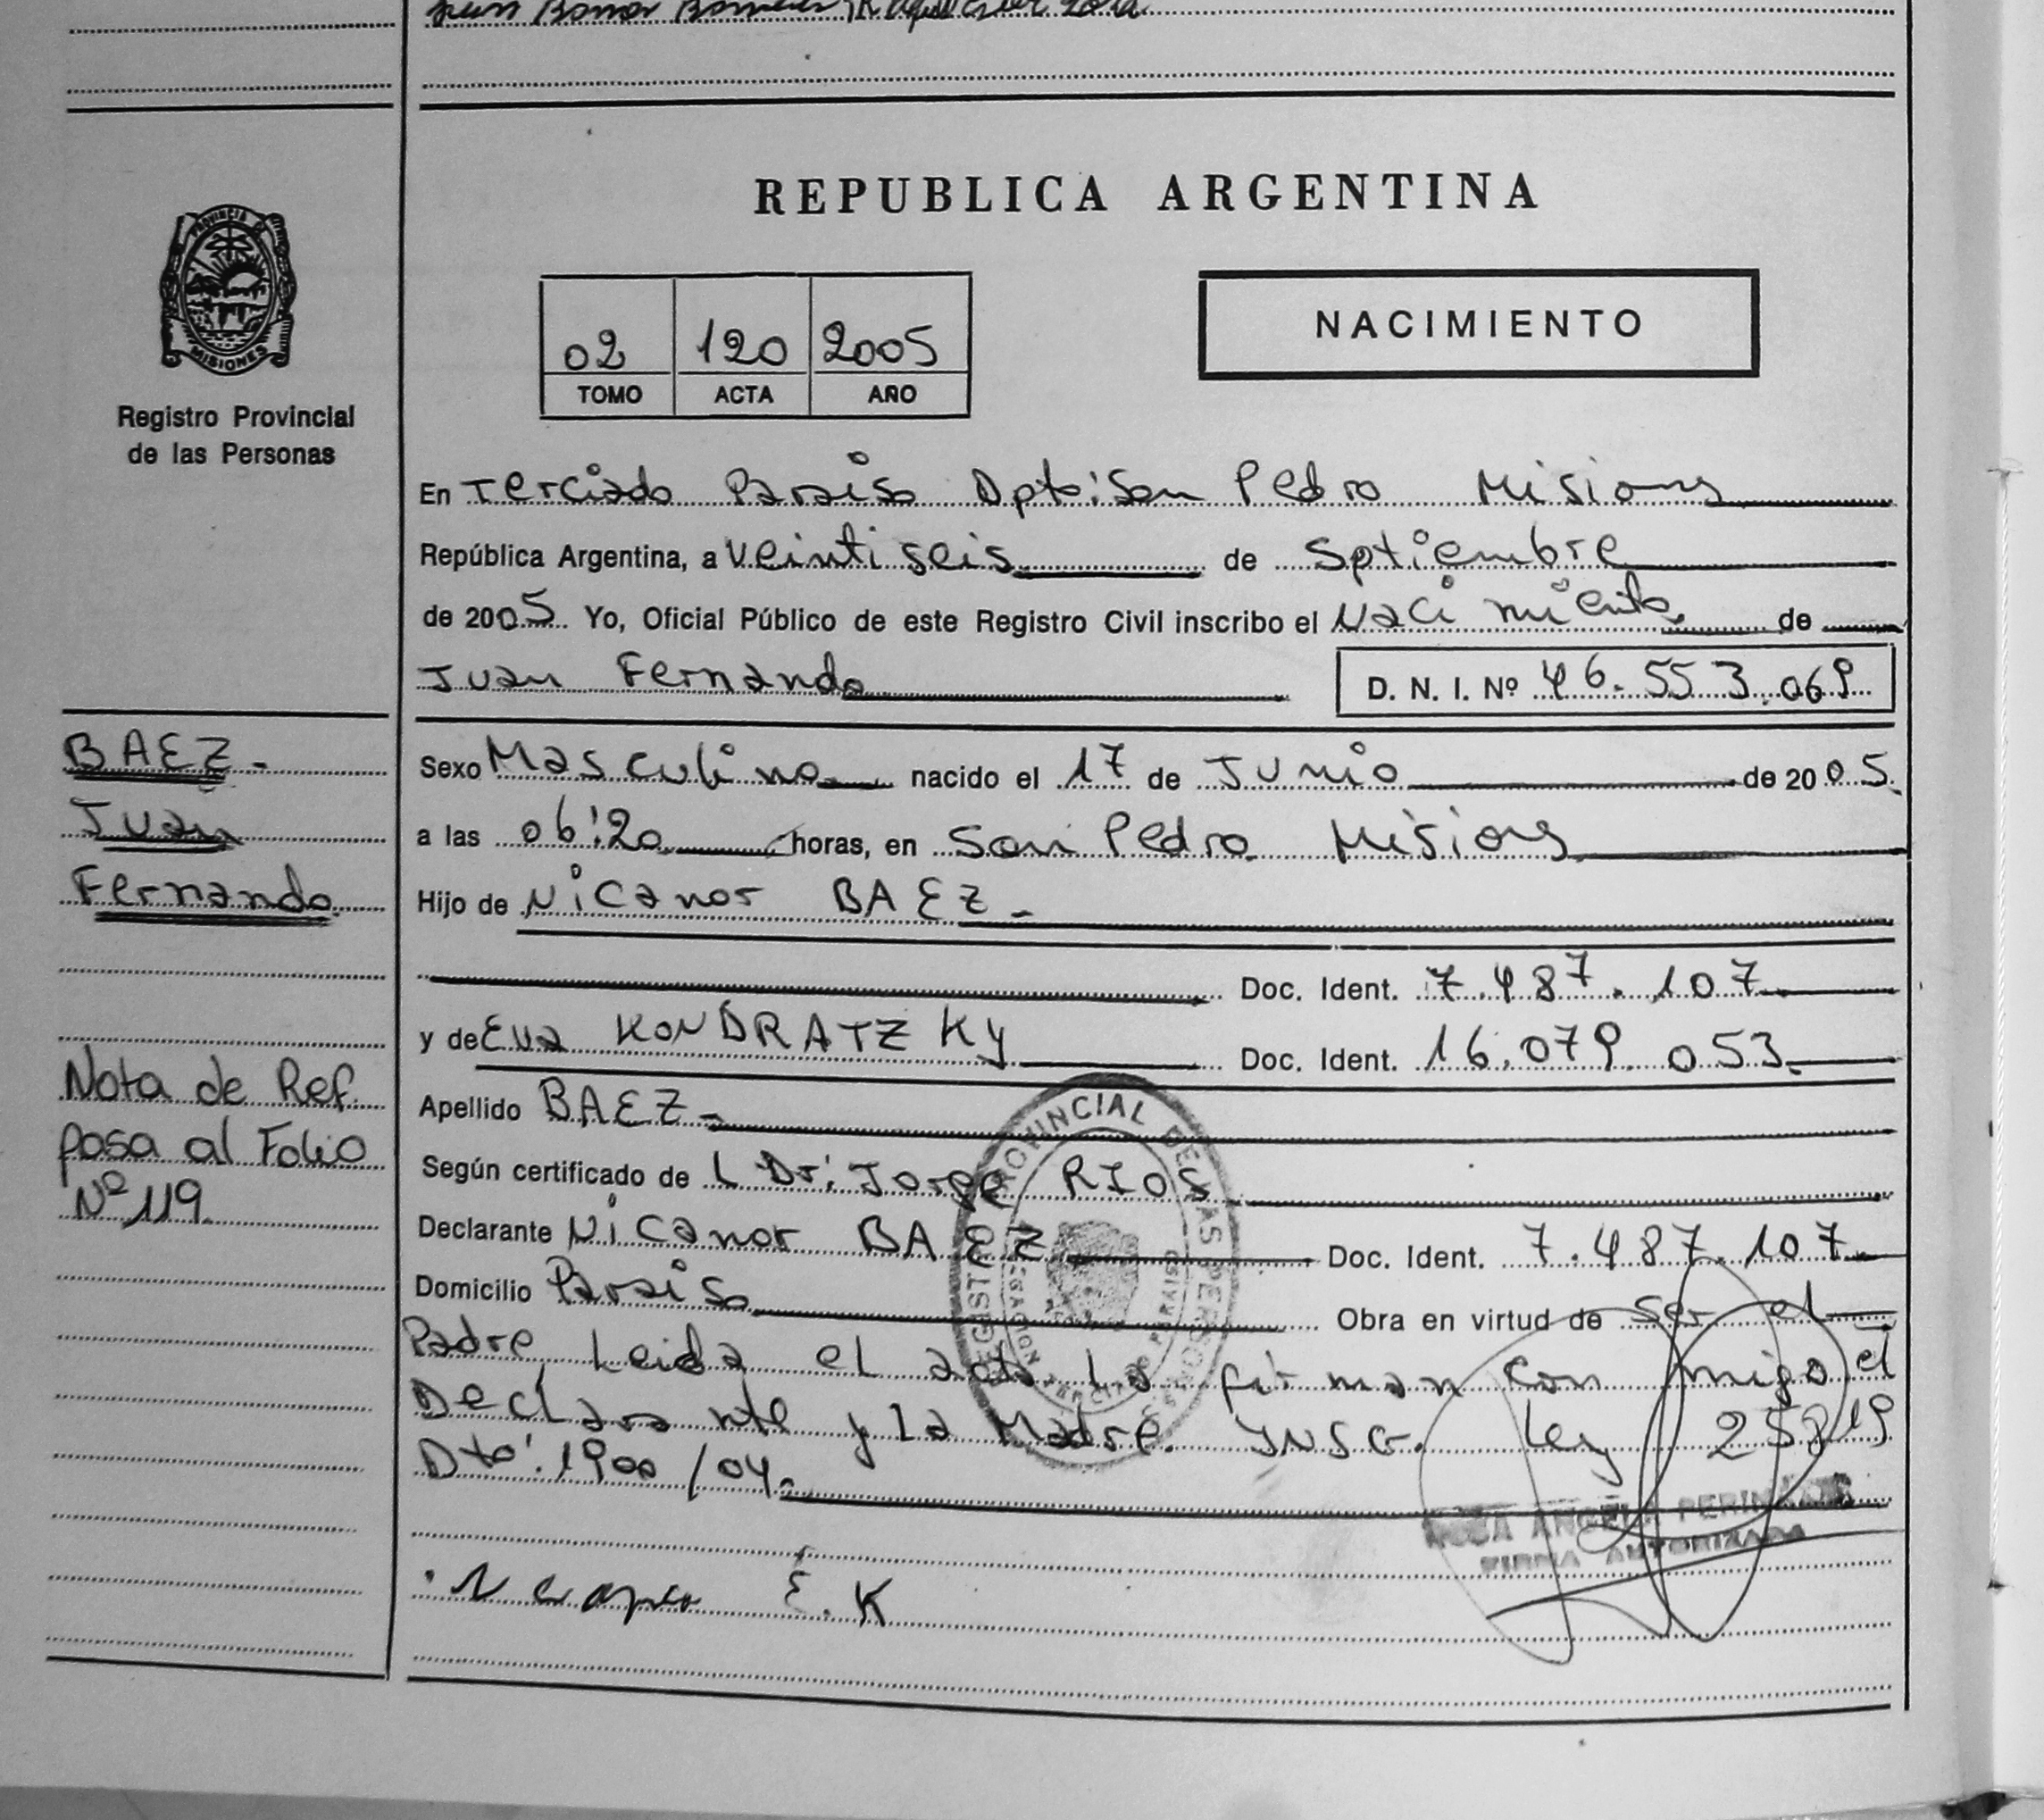 PROVINCIA
MISIONES
Registro Provincial
de las Personas
REPUBLICA ARGENTINA
02 120 2005
TOMO ACTA AÑO
NACIMIENTO
En Terciado Paraiso Dpto: San Pedro Misiones
República Argentina, a veinti seis de Septiembre
de 2005 Yo, Oficial Público de este Registro Civil inscribo el Naci miento de
Juan Fernando D. N. I. Nº 46.553.069
BAEZ.
Juan
Fernando
Sexo Masculino nacido el 17 de Junio de 2005.
a las 06:20 horas, en San Pedro Misiones
Hijo de Nicanor BAEZ
Doc. Ident. 7.487.107
y de Eva KONDRATZKY Doc. Ident. 16.079.053
Nota de Ref.
pasa al Folio
Nº 119.
Apellido BAEZ
Según certificado de L Dr: Jorge RIOS
Declarante Nicanor BAEZ Doc. Ident. 7.487.107
Domicilio Paraiso Obra en virtud de ser el
Padre, Leida el acta la firman con migo el
Declarante y la Madre. INSC. Ley 25819
Dto: 1900/04.
E. K
ANGELA
FIRMA AUTORIZADA